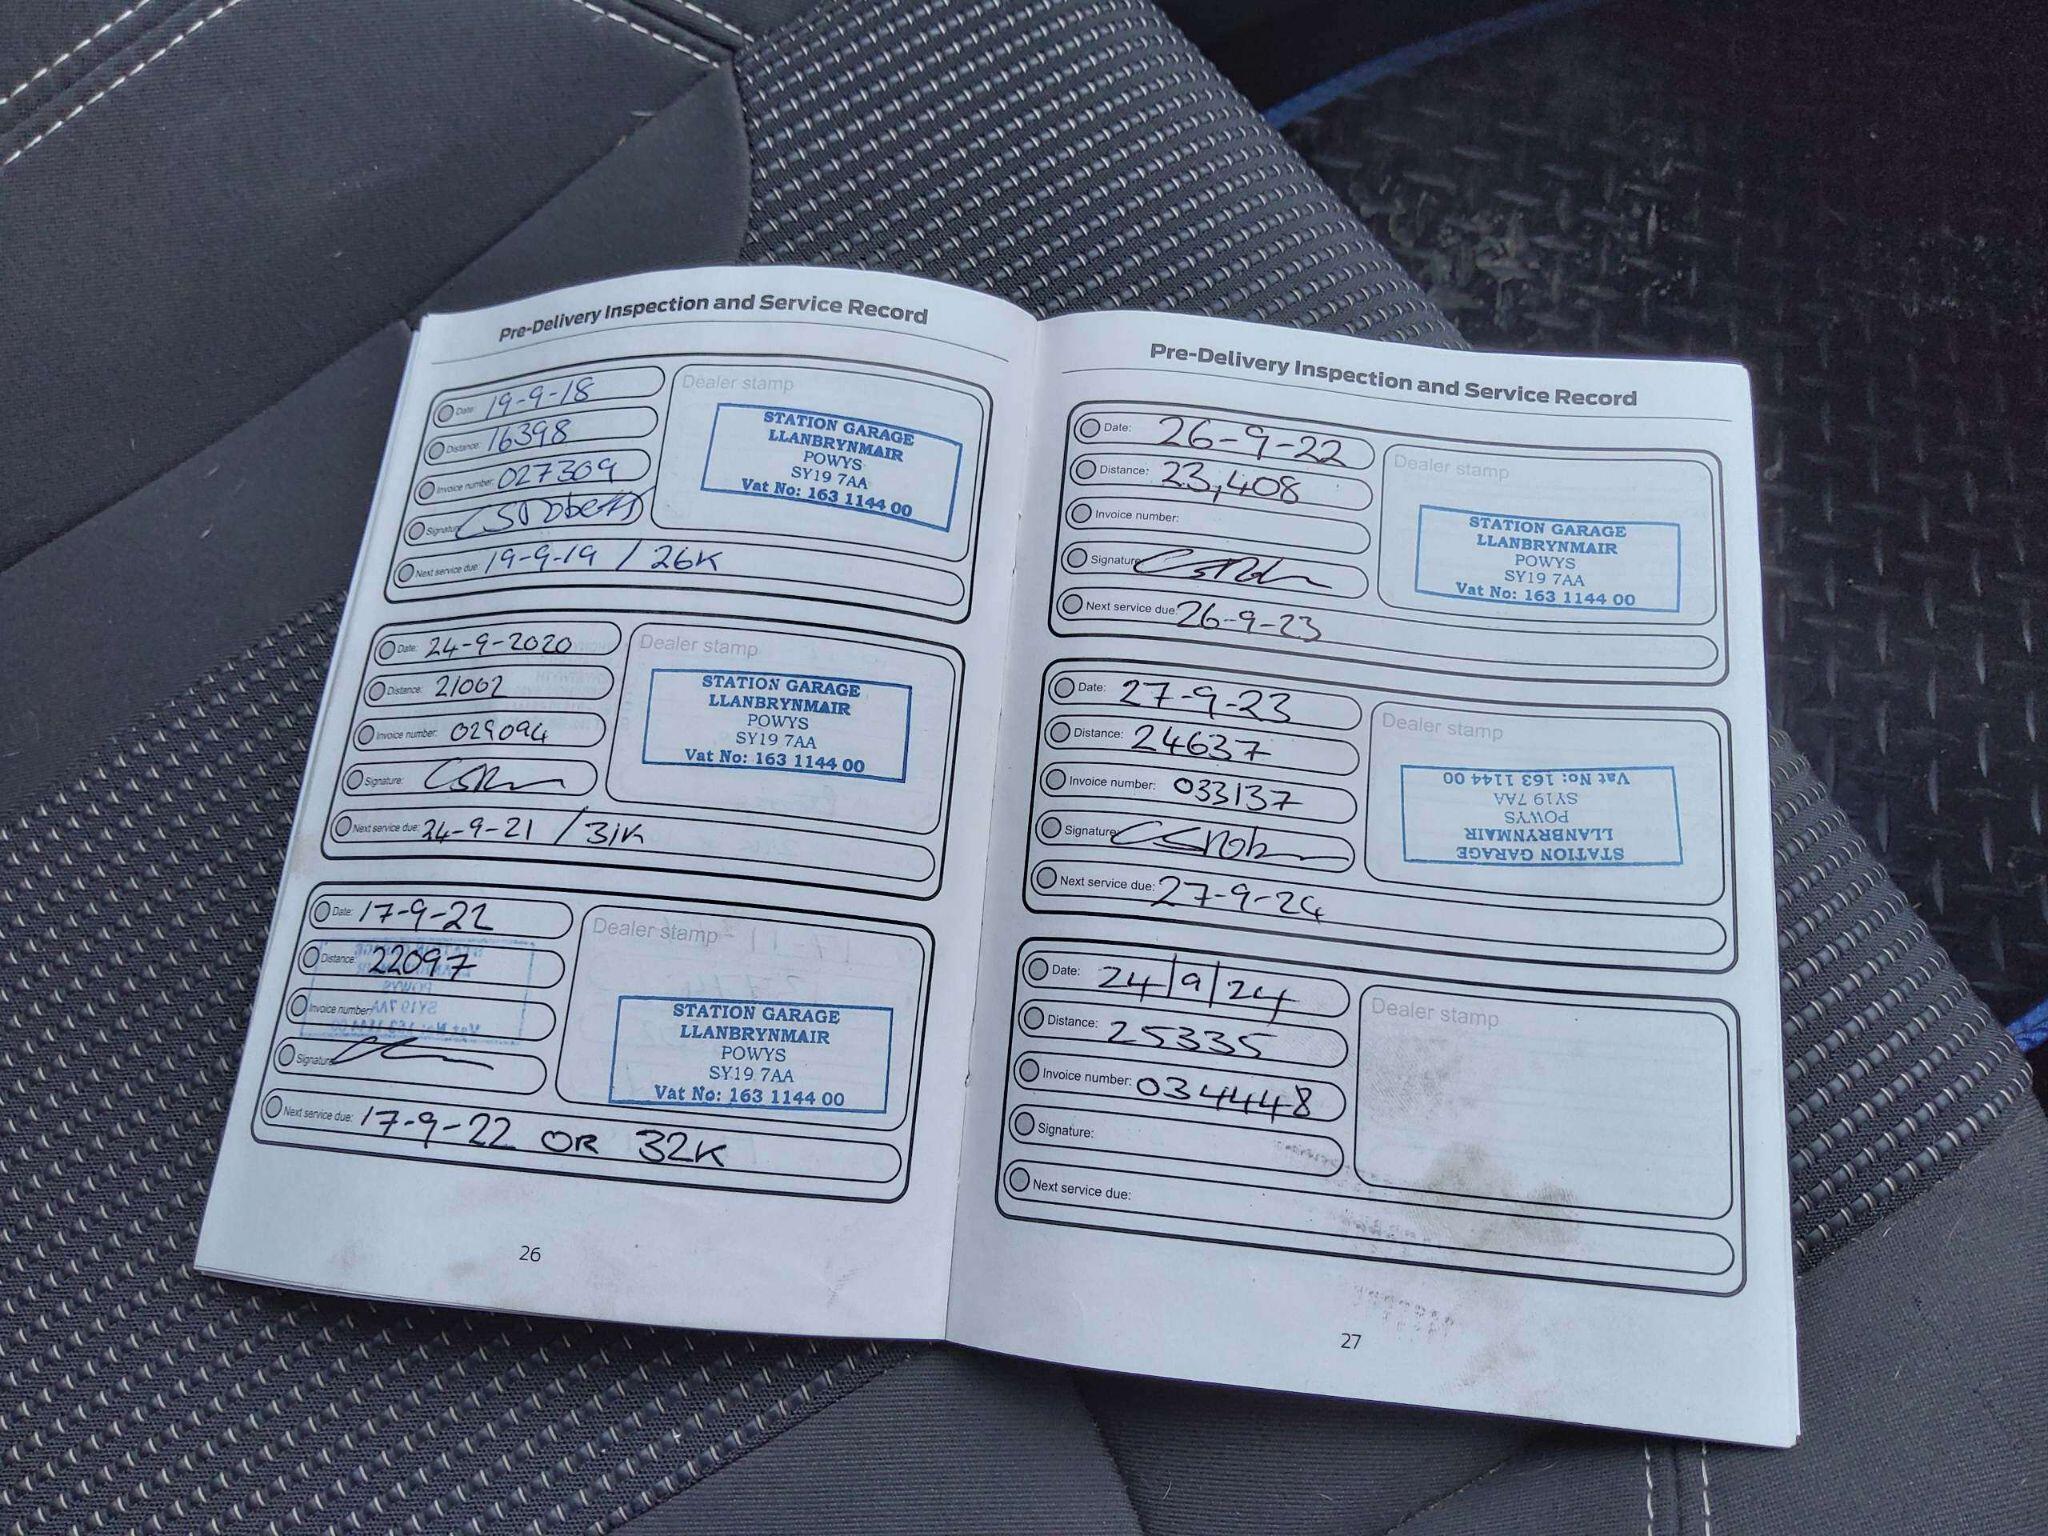 Pre-Delivery Inspection and Service Record
Date: 19-9-18
Distance: 16398
Invoice number: 027309
Signature:
Next service due: 19-9-19 / 26K
Dealer stamp
STATION GARAGE
LLANBRYNMAIR
POWYS
SY19 7AA
Vat No: 163 1144 00
Date: 24-9-2020
Distance: 21062
Invoice number: 029094
Signature:
Next service due: 24-9-21 / 31K
Dealer stamp
STATION GARAGE
LLANBRYNMAIR
POWYS
SY19 7AA
Vat No: 163 1144 00
Date: 17-9-22
Distance: 22097
Invoice number:
Signature:
Next service due: 17-9-22 OR 32K
Dealer stamp
STATION GARAGE
LLANBRYNMAIR
POWYS
SY19 7AA
Vat No: 163 1144 00
26
Pre-Delivery Inspection and Service Record
Date: 26-9-22
Distance: 23,408
Invoice number:
Signature:
Next service due: 26-9-23
Dealer stamp
STATION GARAGE
LLANBRYNMAIR
POWYS
SY19 7AA
Vat No: 163 1144 00
Date: 27-9-23
Distance: 24637
Invoice number: 033137
Signature:
Next service due: 27-9-24
Dealer stamp
STATION GARAGE
LLANBRYNMAIR
POWYS
SY19 7AA
Vat No: 163 1144 00
Date: 24/9/24
Distance: 25335
Invoice number: 034448
Signature:
Next service due:
Dealer stamp
27